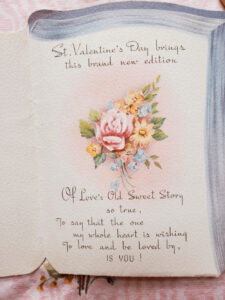 St. Valentine's Day brings
this brand new edition
Of Love's Old Sweet Story
so true,
To say that the one
my whole heart is wishing
To love and be loved by,
IS YOU!